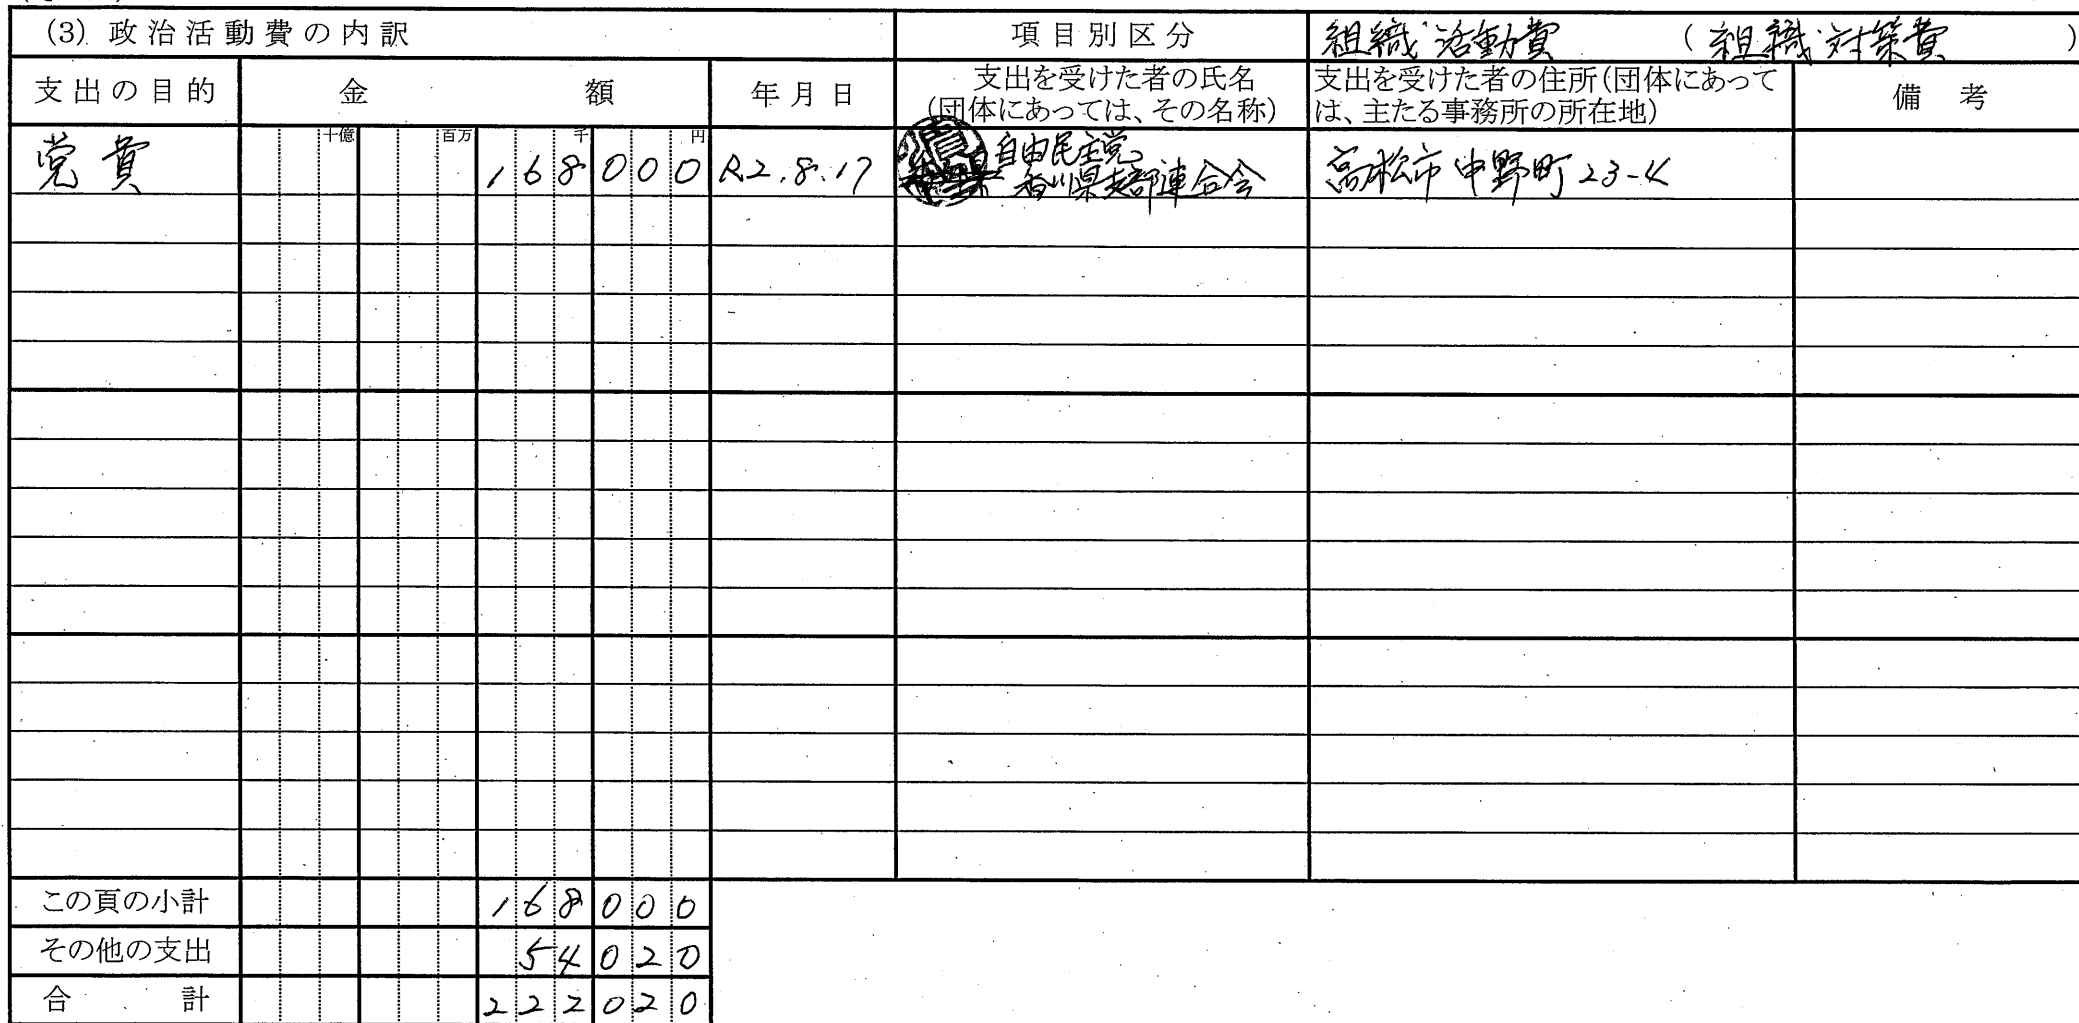 (3) 政治活動費の内訳 項目別区分 組織活動費 (組織対策費)
支出の目的 金額 年月日 支出を受けた者の氏名(団体にあっては、その名称) 支出を受けた者の住所(団体にあっては、主たる事務所の所在地) 備考
十億 百万 千 円
党費 168000 R2.8.17 自由民主党香川県支部連合会 高松市中野町23-4
この頁の小計 168000
その他の支出 54020
合計 222020